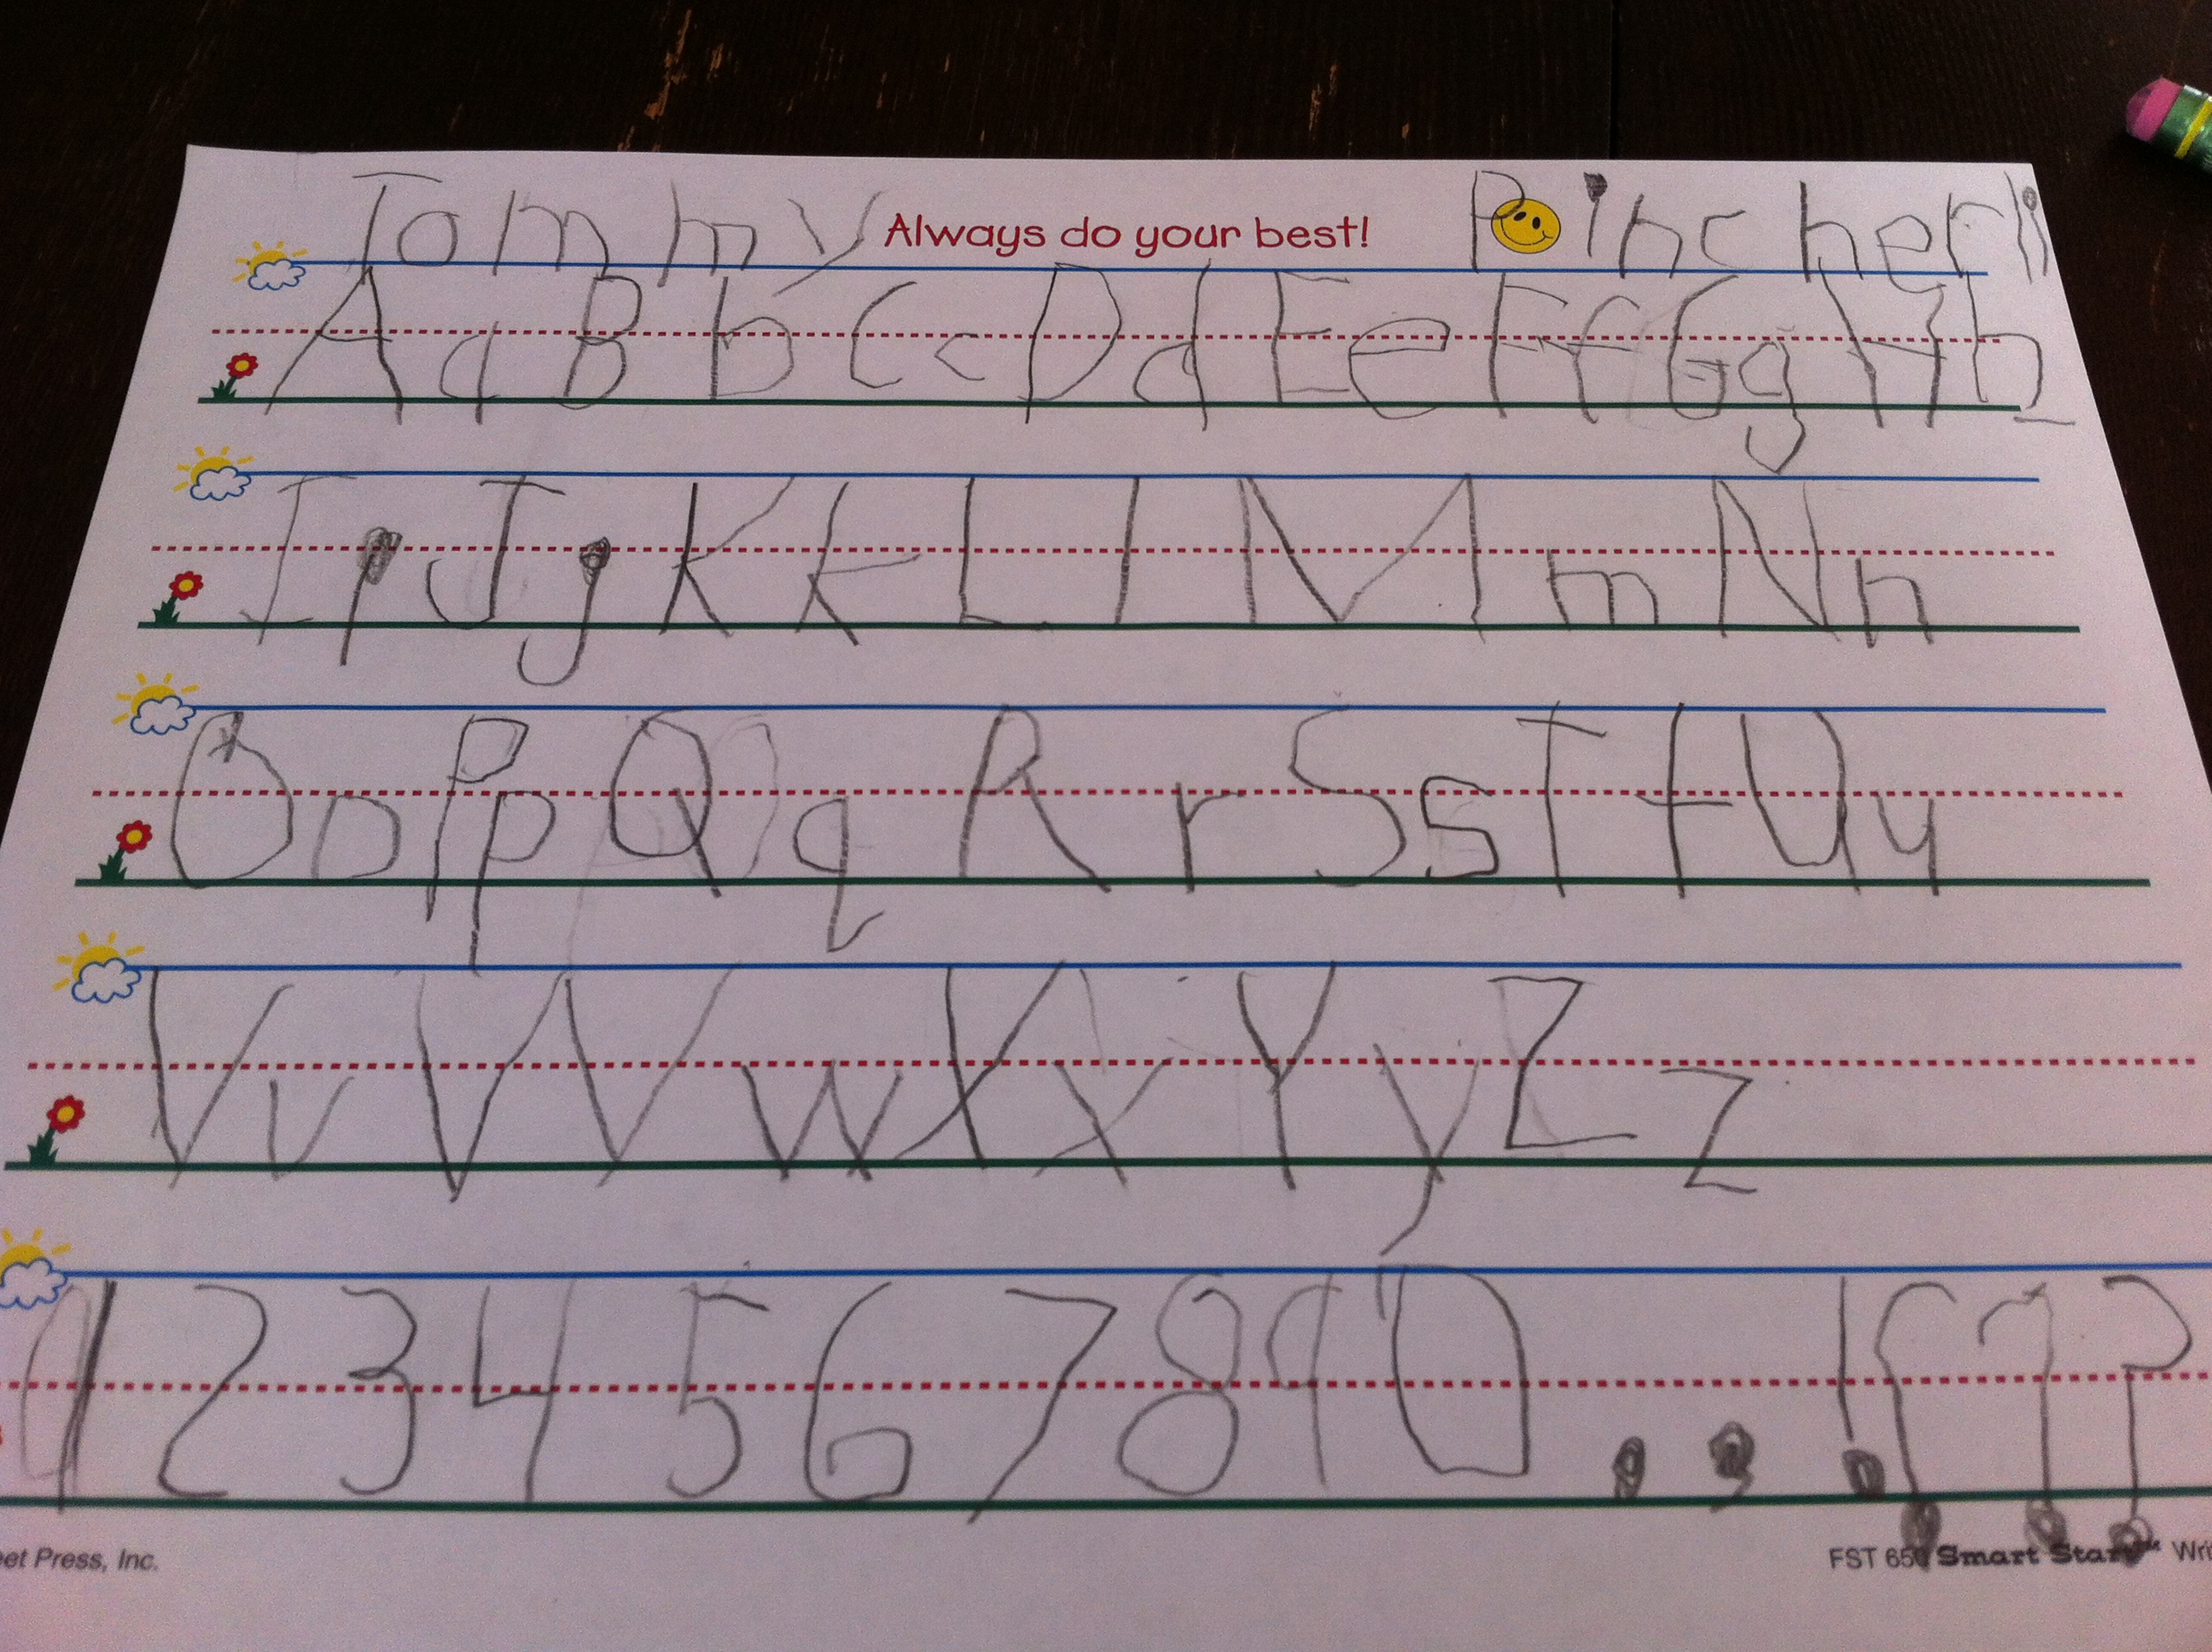 Tommy Always do your best! Pincherli
A a B b C c D d E e F f G g H h
I i J j K k L l M m N n
O o P p Q q R r S s T t U u
V v W w X x Y y Z z
1 2 3 4 5 6 7 8 9 0 . , ! ? ? ?
eet Press, Inc. FST 650 Smart Start™ Wri